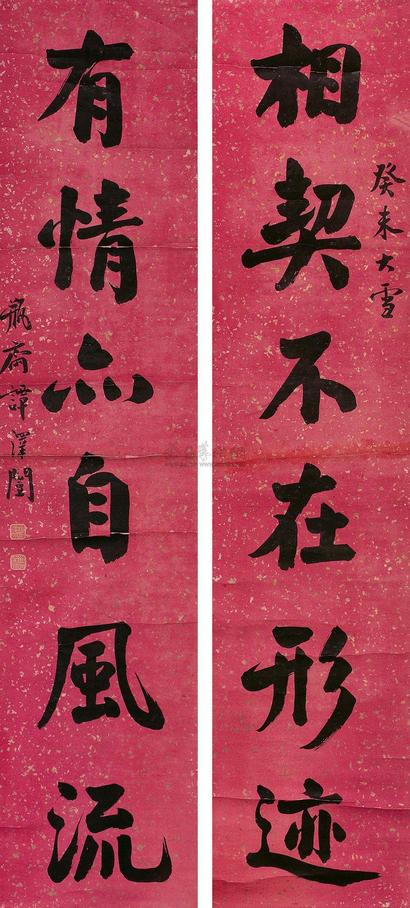 相契不在形迹
癸未大雪
有情亦自風流
瓶齋譚澤闓